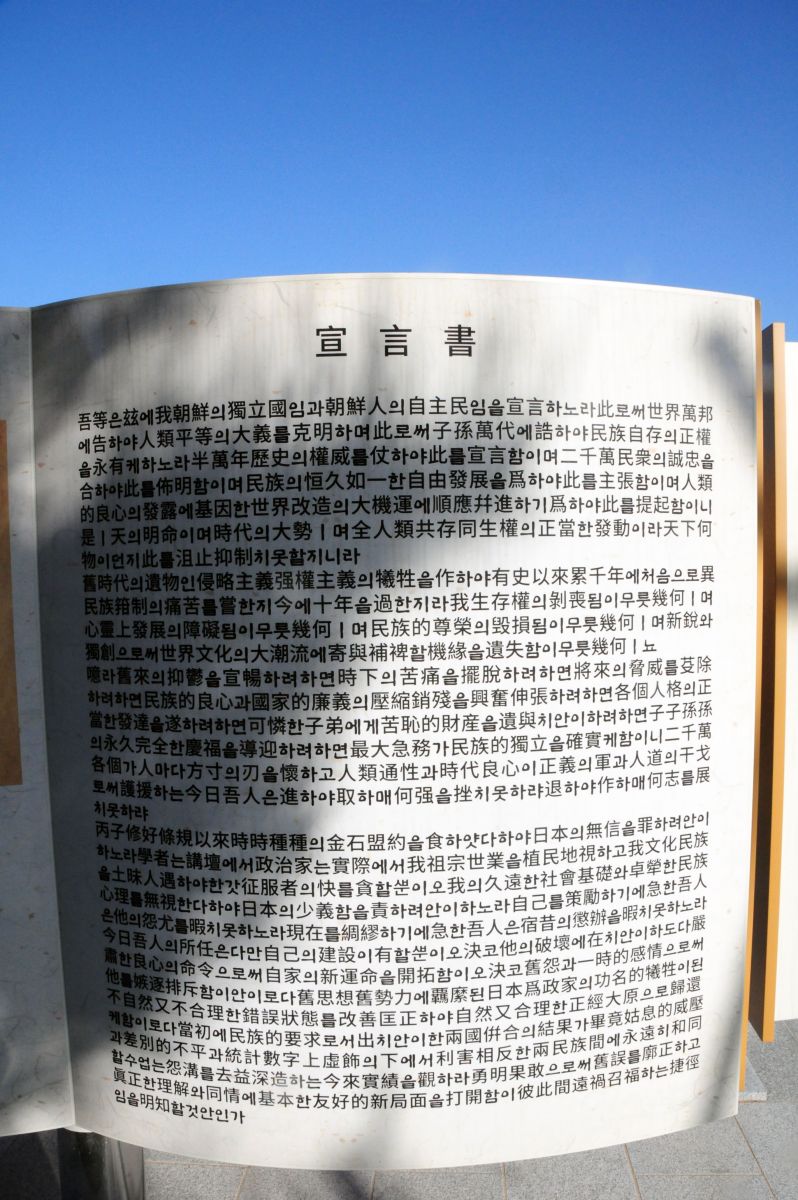 宣言書
吾等은玆에我朝鮮의獨立國임과朝鮮人의自主民임을宣言하노라此로써世界萬邦
에告하야人類平等의大義를克明하며此로써子孫萬代에誥하야民族自存의正權
을永有케하노라半萬年歷史의權威를仗하야此를宣言함이며二千萬民衆의誠忠을
合하야此를佈明함이며民族의恒久如一한自由發展을爲하야此를主張함이며人類
的良心의發露에基因한世界改造의大機運에順應幷進하기爲하야此를提起함이니
是ㅣ天의明命이며時代의大勢ㅣ며全人類共存同生權의正當한發動이라天下何
物이던지此를沮止抑制치못할지니라
舊時代의遺物인侵略主義强權主義의犧牲을作하야有史以來累千年에처음으로異
民族箝制의痛苦를嘗한지今에十年을過한지라我生存權의剝喪됨이무릇幾何ㅣ며
心靈上發展의障礙됨이무릇幾何ㅣ며民族的尊榮의毁損됨이무릇幾何ㅣ며新銳와
獨創으로써世界文化의大潮流에寄與補裨할機緣을遺失함이무릇幾何ㅣ뇨
噫라舊來의抑鬱을宣暢하려하면時下의苦痛을擺脫하려하면將來의脅威를芟除
하려하면民族的良心과國家的廉義의壓縮銷殘을興奮伸張하려하면各個人格의正
當한發達을遂하려하면可憐한子弟에게苦恥的財産을遺與치안이하려하면子子孫孫
의永久完全한慶福을導迎하려하면最大急務가民族的獨立을確實케함이니二千萬
各個가人마다方寸의刃을懷하고人類通性과時代良心이正義의軍과人道의干戈
로써護援하는今日吾人은進하야取하매何强을挫치못하랴退하야作하매何志를展
치못하랴
丙子修好條規以來時時種種의金石盟約을食하얏다하야日本의無信을罪하려안이
하노라學者는講壇에서政治家는實際에서我祖宗世業을植民地視하고我文化民族
을土昧人遇하야한갓征服者의快를貪할뿐이오我의久遠한社會基礎와卓犖한民族
心理를無視한다하야日本의少義함을責하려안이하노라自己를策勵하기에急한吾人
은他의怨尤를暇치못하노라現在를綢繆하기에急한吾人은宿昔의懲辦을暇치못하노라
今日吾人의所任은다만自己의建設이有할뿐이오決코他의破壞에在치안이하도다嚴
肅한良心의命令으로써自家의新運命을開拓함이오決코舊怨과一時的感情으로써
他를嫉逐排斥함이안이로다舊思想舊勢力에羈縻된日本爲政家의功名的犧牲이된
不自然又不合理한錯誤狀態를改善匡正하야自然又合理한正經大原으로歸還
케함이로다當初에民族的要求로서出치안이한兩國倂合의結果가畢竟姑息的威壓
과差別的不平과統計數字上虛飾의下에서利害相反한兩民族間에永遠히和同
할수업는怨溝를去益深造하는今來實績을觀하라勇明果敢으로써舊誤를廓正하고
眞正한理解와同情에基本한友好的新局面을打開함이彼此間遠禍召福하는捷徑
임을明知할것안인가